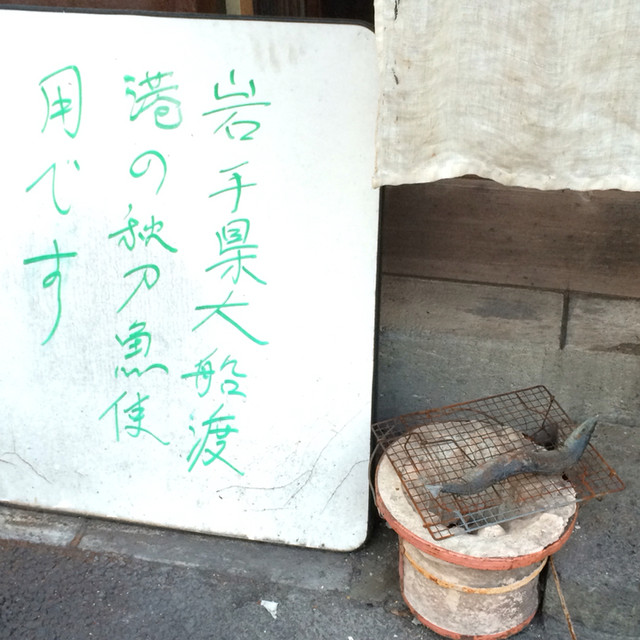 岩手県大船渡
港の秋刀魚使
用です